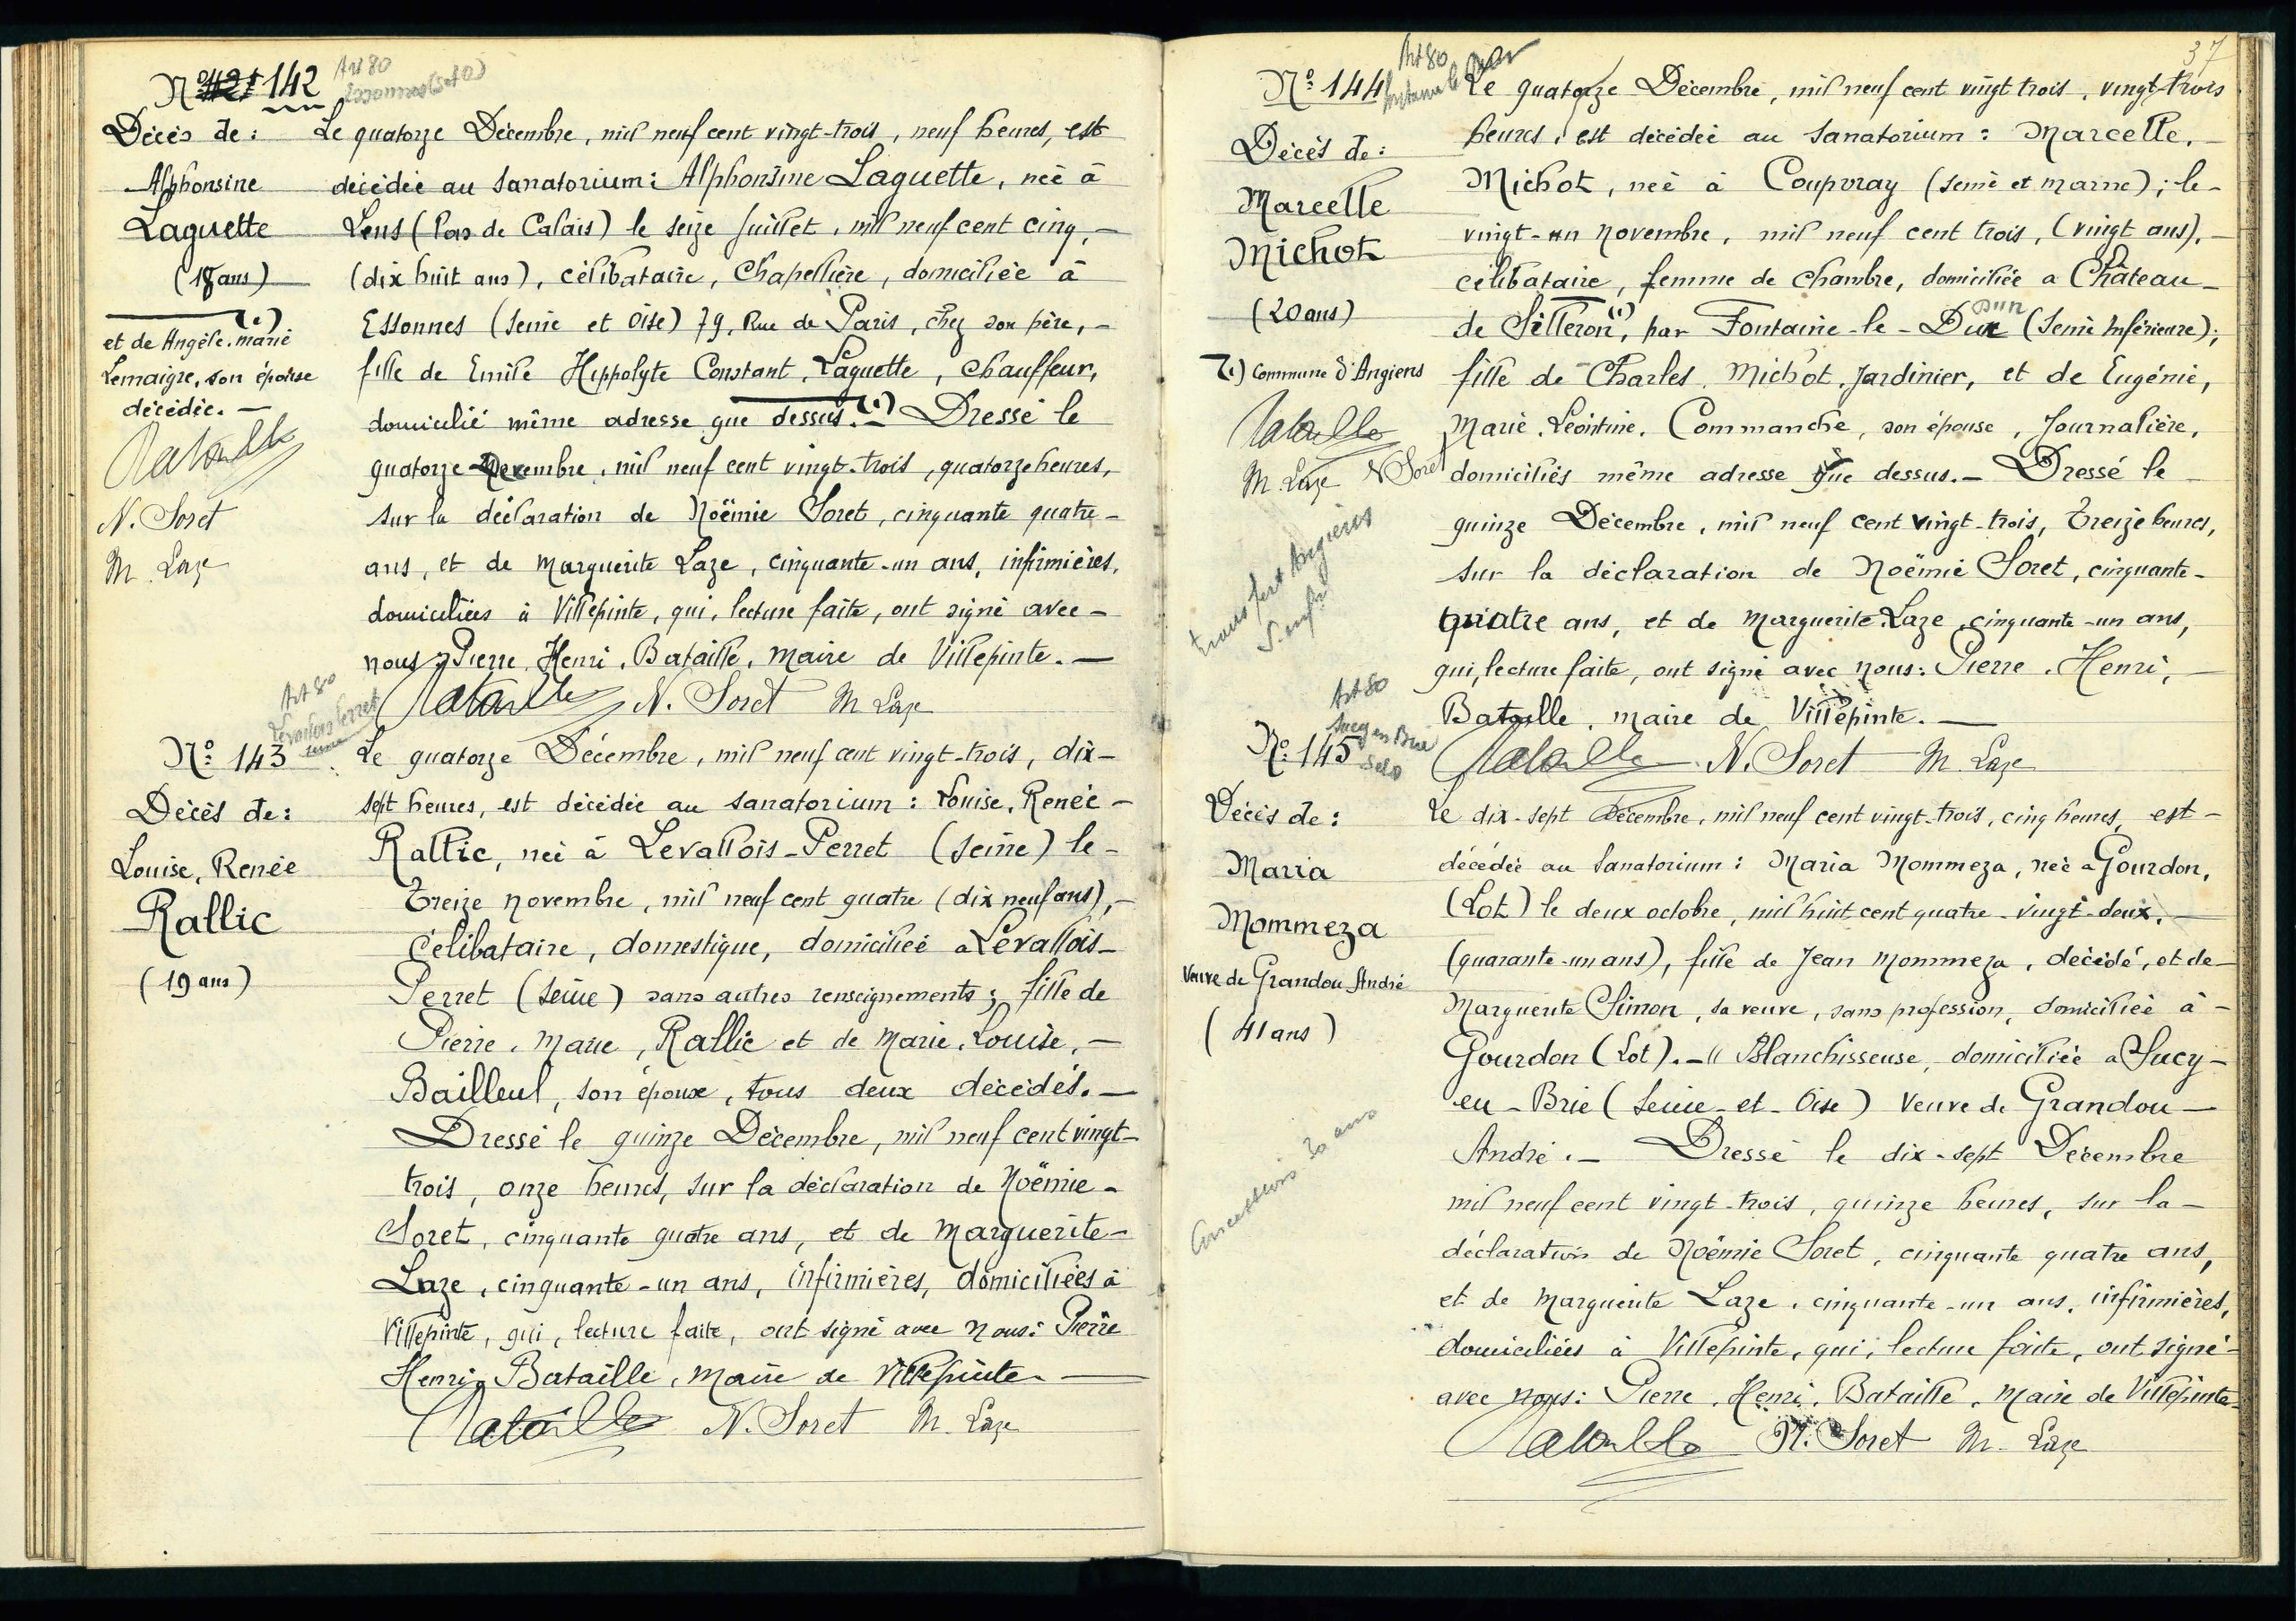 N° 142
Art 80
Essonnes (S et O)
Décès de :
Alphonsine
Laguette
(18 ans)
(1)
et de Angèle. marie
Lemaigre, son épouse
décédée. —
Bataille
N. Soret
M. Laze
Le quatorze Décembre, mil neuf cent vingt-trois, neuf heures, est
décédée au sanatorium : Alphonsine Laguette, née à
Lens (Pas de Calais) le seize Juillet, mil neuf cent cinq, —
(dix huit ans), célibataire, Chapellière, domiciliée à
Essonnes (Seine et Oise) 79, Rue de Paris, chez son père, —
fille de Emile Hippolyte Constant, Laguette, chauffeur,
domicilié même adresse que dessus. (1) — Dressé le
quatorze Décembre, mil neuf cent vingt-trois, quatorze heures,
sur la déclaration de Noëmie Soret, cinquante quatre —
ans, et de Marguerite Laze, cinquante-un ans, infirmières,
domiciliées à Villepinte, qui, lecture faite, ont signé avec —
nous Pierre, Henri, Bataille, maire de Villepinte. —
Bataille N. Soret M Laze
Art 80
Levallois Perret
Seine
N° 143
Décès de :
Louise, Renée
Rallic
(19 ans)
Le quatorze Décembre, mil neuf cent vingt-trois, dix-
sept heures, est décédée au sanatorium : Louise, Renée —
Rallic, née à Levallois-Perret (Seine) le —
Treize novembre, mil neuf cent quatre (dix neuf ans), —
célibataire, domestique, domiciliée à Levallois-
Perret (Seine) sans autres renseignements ; fille de
Pierre, Marie, Rallic et de Marie, Louise, —
Bailleul, son épouse, tous deux décédés. —
Dressé le quinze Décembre, mil neuf cent vingt-
trois, onze heures, sur la déclaration de Noëmie —
Soret, cinquante quatre ans, et de Marguerite —
Laze, cinquante-un ans, infirmières, domiciliées à
Villepinte, qui, lecture faite, ont signé avec nous : Pierre
Henri, Bataille, Maire de Villepinte. —
Bataille N. Soret M. Laze
37
N° 144
Art 80
Décès de :
Marcelle
Michot
(20 ans)
(1) Commune d'Angiens
Bataille
M. Laze N Soret
transfert Angiens
S. infre
Le quatorze Décembre, mil neuf cent vingt trois, vingt-trois
heures, est décédée au sanatorium : Marcelle, —
Michot, née à Coupvray (Seine et marne) ; le —
vingt-un novembre, mil neuf cent trois, (vingt ans), —
célibataire, femme de chambre, domiciliée à Château —
de Silleron (1), par Fontaine-le-Dun (Seine Inférieure) ;
fille de Charles, Michot, Jardinier, et de Eugénie,
Marie, Léontine, Commanche, son épouse, Journalière,
domiciliés même adresse que dessus. — Dressé le —
quinze Décembre, mil neuf cent vingt-trois, Treize heures,
sur la déclaration de Noëmie Soret, cinquante-
quatre ans, et de Marguerite Laze, cinquante-un ans,
qui, lecture faite, ont signé avec nous : Pierre, Henri, —
Bataille, maire de Villepinte. —
Bataille N. Soret M. Laze
Art 80
Sucy en Brie
S et O
N° 145
Décès de :
Maria
Mommeza
Veuve de Grandou André
(41 ans)
Concession 30 ans
Le dix-sept Décembre, mil neuf cent vingt-trois, cinq heures, est —
décédée au Sanatorium : Maria Mommeza, née à Gourdon,
(Lot) le deux octobre, mil huit cent quatre-vingt-deux, —
(quarante-un ans), fille de Jean Mommeza, décédé, et de —
Marguerite Simon, sa veuve, sans profession, domiciliée à —
Gourdon (Lot). — " Blanchisseuse, domiciliée à Sucy-
en-Brie (Seine-et-Oise) Veuve de Grandou —
André. — Dressé le dix-sept Décembre
mil neuf cent vingt-trois, quinze heures, sur la —
déclaration de Noëmie Soret, cinquante quatre ans,
et de Marguerite Laze, cinquante-un ans, infirmières,
domiciliées à Villepinte, qui, lecture faite, ont signé —
avec nous : Pierre, Henri, Bataille, Maire de Villepinte.
Bataille N. Soret M. Laze